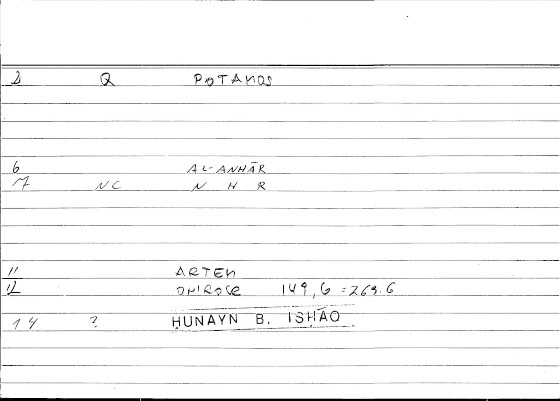 8 Q POTAMOS
6 AL-ANHĀR
7 NC N H R
11 ARTEM
12 ONIROCR 149,6 = 269.6
14 ? ḤUNAYN B. ISḤĀQ